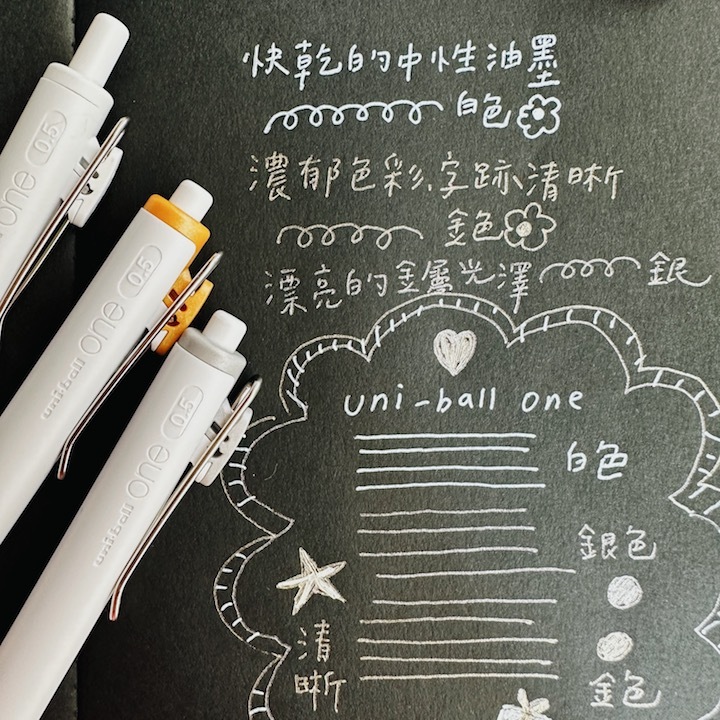 快乾的中性油墨
白色
濃郁色彩、字跡清晰
金色
漂亮的金屬光澤 銀
uni-ball one
白色
銀色
金色
清晰
one 0.5
uni-ball one 0.5
uni-ball one 0.5